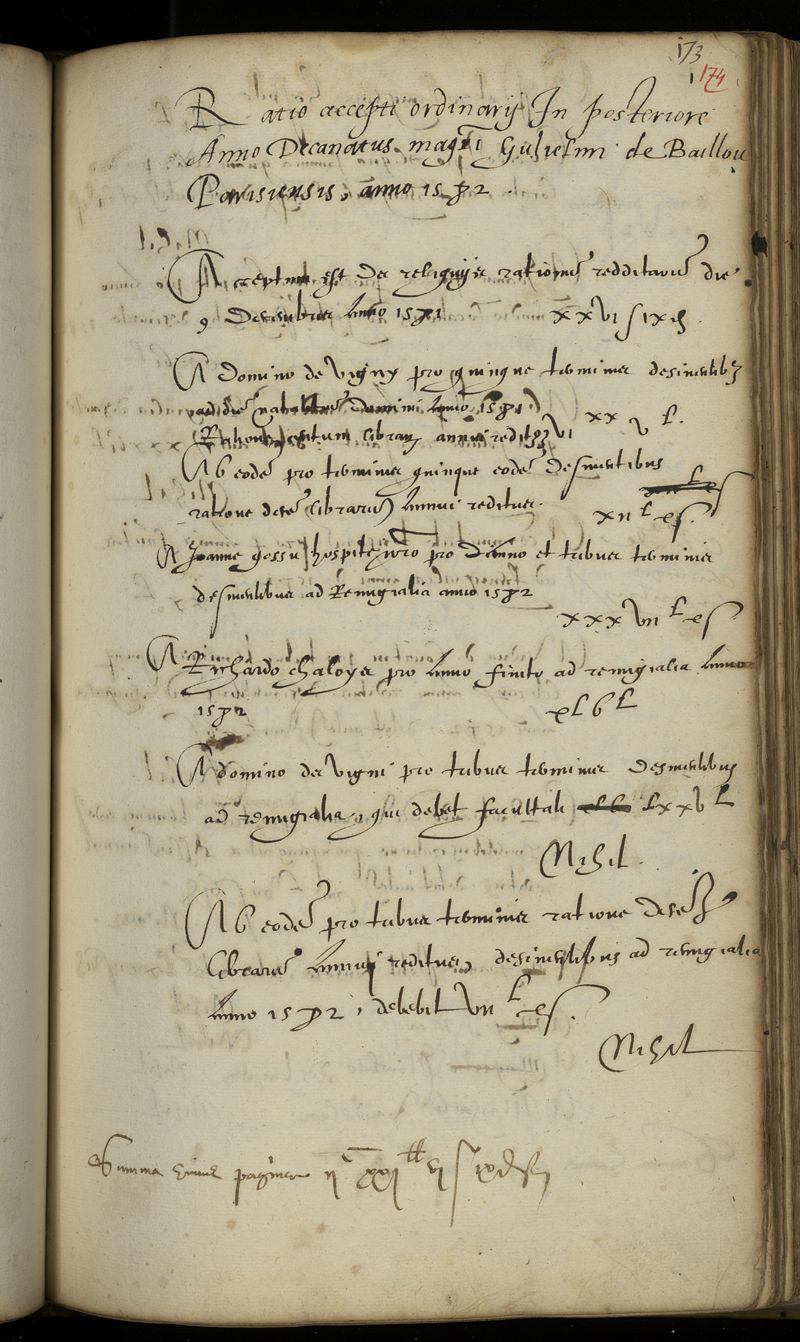 173
174
Ratio accepti ordinarij In posteriore
Anno Decanatus magri Gulielmi de Baillou
Parisiensis, anno 1572.
Acceptum est de reliquijs rationis redditarum die
9 Decembris Anno 1571 xxvi s ix d.
A Domino de Vigny pro quinque terminis desinentibus
ad diem Domini Anno 1571
librarum annui reditus xxv L.
Ab eodem pro terminis quinque eodem desinentibus
ratione decem librarum annui reditus. xii L x s.
A Joanne gossu hospite pro Anno et tribus terminis
desinentibus ad Remigialia anno 1572
xxxvii L x s
A Richardo chaloyer pro Anno finito ad remigialia Anno
1572 xl L
A domino de Vigni pro tribus terminis desinentibus
ad remigialia, qui debet facultati Lxxv L
Nihil.
Ab eodem pro tribus terminis ratione decem
librarum Annui reditus, desinentibus ad remigialia
Anno 1572, debebit vii L x s.
Nihil
Summa pagine